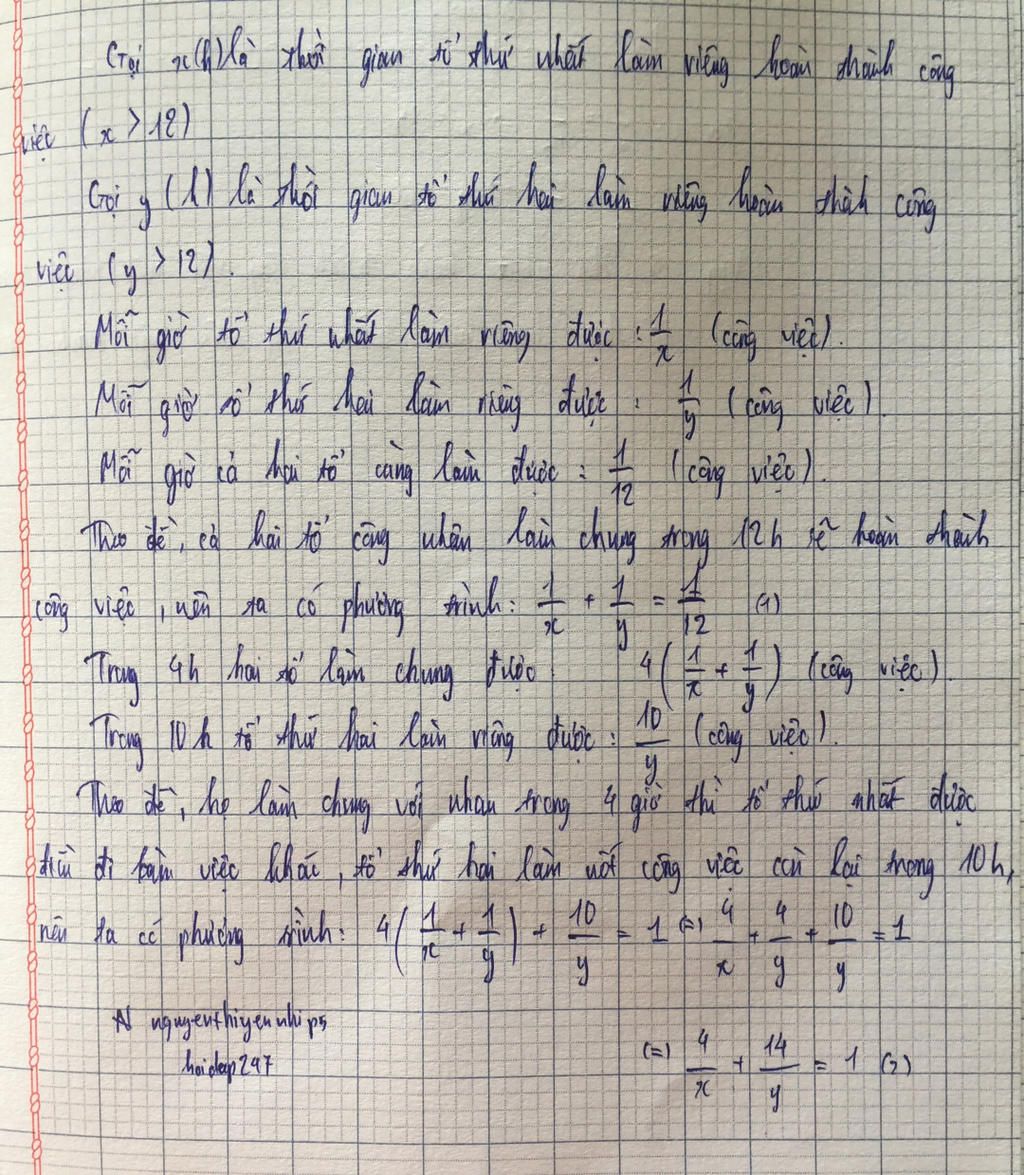 Gọi x(h) là thời gian tổ thứ nhất làm riêng hoàn thành công
việc (x > 12)
Gọi y (h) là thời gian tổ thứ hai làm riêng hoàn thành công
việc (y > 12).
Mỗi giờ tổ thứ nhất làm riêng được : 1/x (công việc).
Mỗi giờ tổ thứ hai làm riêng được : 1/y (công việc).
Mỗi giờ cả hai tổ cùng làm được : 1/12 (công việc).
Theo đề, cả hai tổ công nhân làm chung trong 12h sẽ hoàn thành
công việc, nên ta có phương trình: 1/x + 1/y = 1/12 (1)
Trong 4h hai tổ làm chung được: 4(1/x + 1/y) (công việc).
Trong 10h tổ thứ hai làm riêng được: 10/y (công việc).
Theo đề, họ làm chung với nhau trong 4 giờ thì tổ thứ nhất được
điều đi làm việc khác, tổ thứ hai làm nốt công việc còn lại trong 10h,
nên ta có phương trình: 4(1/x + 1/y) + 10/y = 1 (=) 4/x + 4/y + 10/y = 1
(=) 4/x + 14/y = 1 (2)
nguyenthiyennhips
hoidap247